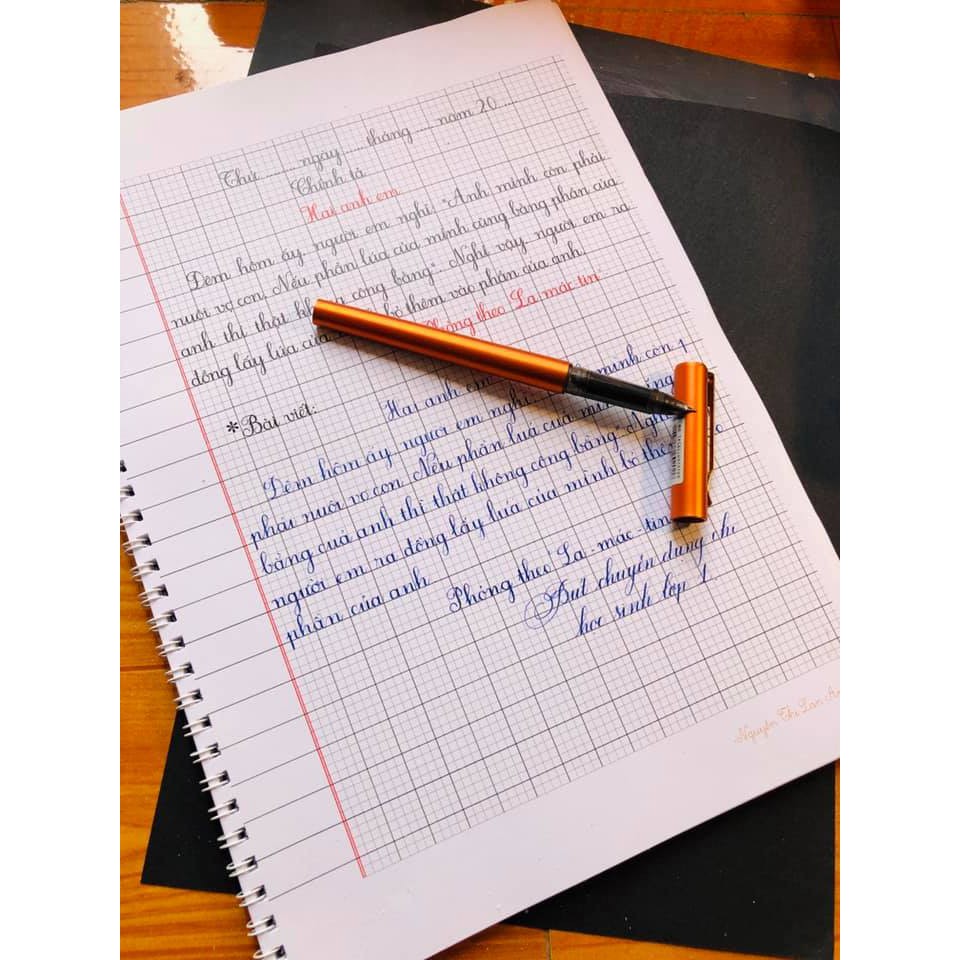 Thứ ......... ngày ...... tháng ...... năm 20 .....
Chính tả
Hai anh em
Đêm hôm ấy, người em nghĩ: "Anh mình còn phải
nuôi vợ con. Nếu phần lúa của mình cũng bằng phần của
anh thì thật công bằng". Nghĩ vậy, người em ra
đồng lấy lúa của bỏ thêm vào phần của anh.
theo La mác tin
*Bài viết:
Hai anh em
Đêm hôm ấy, người em nghĩ: mình con
phải nuôi vợ con. Nếu phần luá của
bằng cuả anh thì thật không công bằng". Nghĩ
người em ra đồng lấy luá của mình bỏ
phần của anh
Phỏng theo La - mác - tin
Bút chuyên dùng
học sinh lớp 1
Nguyễn Thị Lan